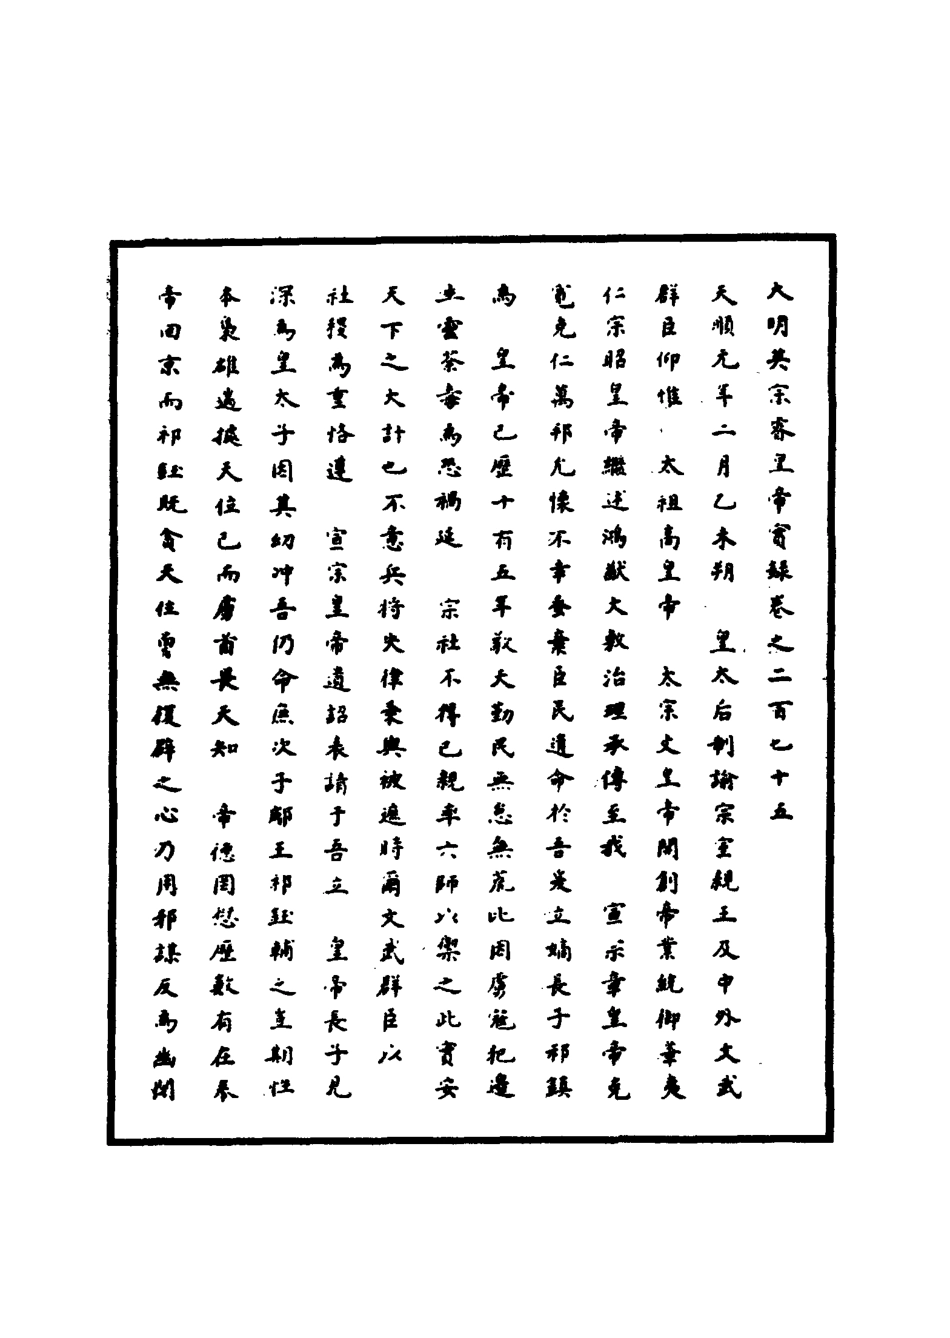 大明英宗睿皇帝實錄卷之二百七十五
天順元年二月乙未朔　皇太后制諭宗室親王及中外文武
群臣仰惟　太祖高皇帝　太宗文皇帝開創帝業統御華夷
仁宗昭皇帝繼述鴻猷大敷治理承傳至我　宣宗章皇帝克
寬克仁萬邦允懷不幸蚤棄臣民遺命於吾爰立嫡長子祁鎮
為　皇帝已歷十有五年敬天勤民無怠無荒比因虜寇犯邊
生靈荼毒為恐禍延　宗社不得已親率六師以禦之此實安
天下之大計也不意兵將失律乘輿被遮時爾文武群臣以
社稷為重恪遵　宣宗皇帝遺詔表請于吾立　皇帝長子見
深為皇太子因其幼冲吾仍命庶次子郕王祁鈺輔之豈期性
本梟雄遄據天位已而虜酋畏天知　帝德罔愆歷數有在奉
帝回京而祁鈺既貪天位曾無復辟之心乃用邪謀反為幽閉